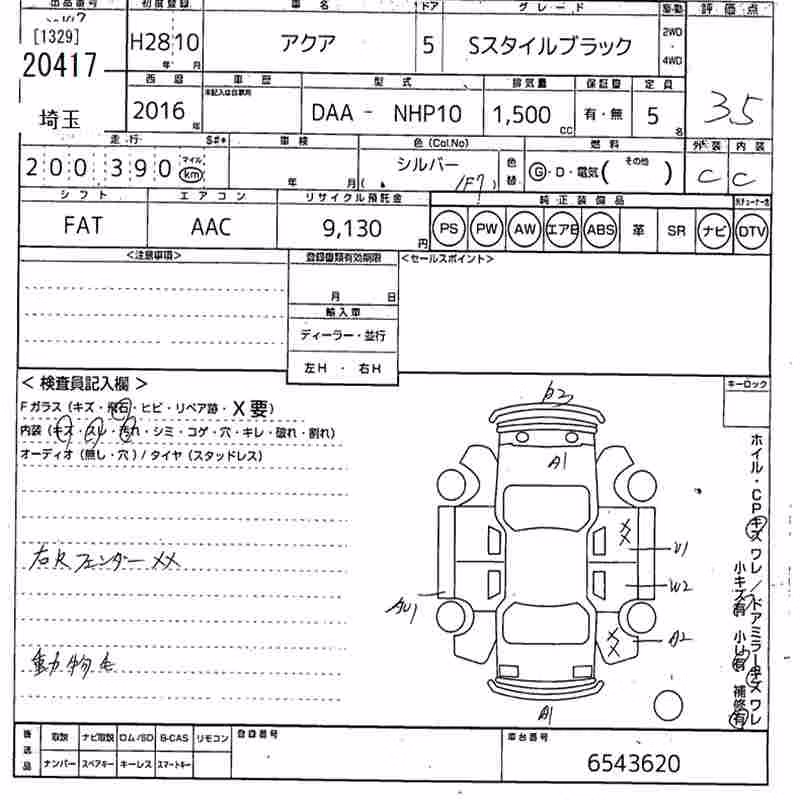 出品番号 初度登録 車名 ドア グレード 駆動 評価点
[1329] 20417 埼玉
H28 10 年 月 アクア 5 Sスタイルブラック 2WD・4WD 3.5
西暦 車歴 型式 排気量 保証書 定員
2016 年 未記入は自家用 DAA - NHP10 1,500 CC 有・無 5 名
走行 S#* 車検 色(Col.No) 燃料 外装 内装
200,390 マイル km 年 月 シルバー ( 1F7 ) 色替 G・D・電気( その他 ) C C
シフト エアコン リサイクル預託金 純正装備品
FAT AAC 9,130 円 PS PW AW エアB ABS 革 SR ナビ DTV
<注意事項> 登録書類有効期限 <セールスポイント>
月 日
輸入車
ディーラー・並行
左H ・ 右H
<検査員記入欄> キーロック
Fガラス(キズ・飛石・ヒビ・リペア跡・X要)
内装(キズ・スレ・汚れ・シミ・コゲ・穴・キレ・破れ・割れ)
オーディオ(無し・穴)/タイヤ(スタッドレス)
右Rフェンダー XX
動物毛
B2
A1
XX
U1
W2
AU1
XX
A2
A1
ホイル・CPキズ ワレ/ドアミラーキズ ワレ
小キズ有 小凹有 補修有
後送品 取説 ナビ取説 ロム/SD B-CAS リモコン 登録番号 車台番号
ナンバー スペアキー キーレス スマートキー 6543620